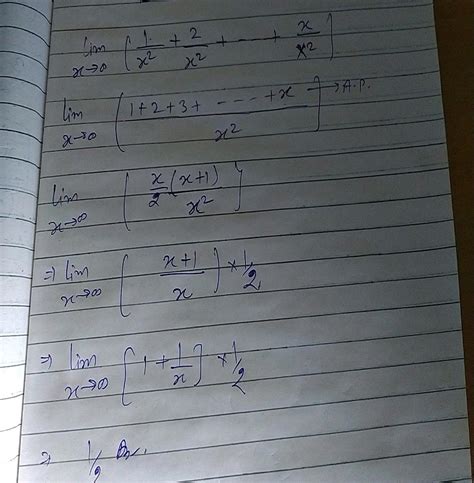 lim x→∞ [ 1/x² + 2/x² + - - - + x/x² ]
lim x→∞ [ (1+2+3+ - - - - +x)/x² ] → A.P.
lim x→∞ [ x/2 (x+1)/x² ]
⇒ lim x→∞ [ (x+1)/x ] × 1/2
⇒ lim x→∞ [ 1 + 1/x ] × 1/2
⇒ 1/2